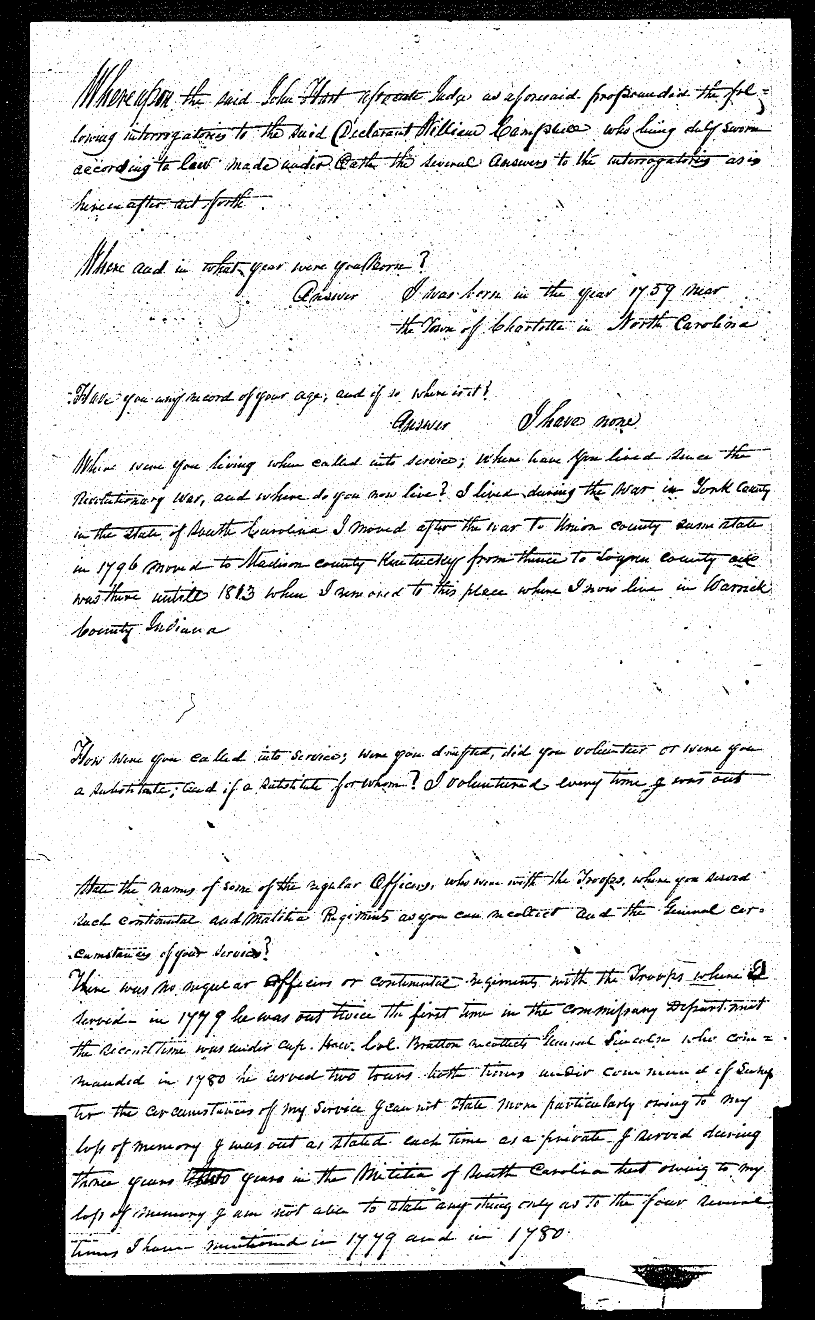 Whereupon the said John Hart asociate Judge as aforesaid propounded the fol=
lowing interrogatories to the said Declarant William Campbell who being duly sworn
according to law made under Oath the several answers to the interrogatories as is
herein after set forth
Where and in what year were you Born?
Answer I was born in the year 1759 near
the Town of Charlotte in North Carolina
Have you any record of your age; and if so where is it?
Answer I have none
Where were you living when called into service; where have you lived since the
Revolutionary War, and where do you now live? I lived during the War in York County
in the State of South Carolina I moved after the war to Union county same state
in 1796 moved to Madison county Kentuckey from thence to Logan county and
was there untill 1813 when I removed to this place where I now live in Warrick
County Indiana
How were you called into service; were you drafted, did you volunteer or were you
a substitute; and if a substitute for whom? I volunteered every time I was out
State the names of some of the regular Officers, who were with the Troops, where you served
such continental and Malitia Regiments as you can recollect and the General cir-
cumstances of your service?
There was no regular officers or continental regiments with the Troops where I
served - in 1779 he was out twice the first time in the commissary Department
the second time was under Cap. Col. Bratton recollects General Lincoln who com=
manded in 1780 he served two tours both times under command of Sump
ter the circumstances of my service I can not state more particularly owing to my
loss of memory I was out as stated each time as a private - I served during
three years years in the Militia of South Carolina but owing to my
loss of memory I am not able to state any thing only as to the four several
times I have mentioned in 1779 and in 1780